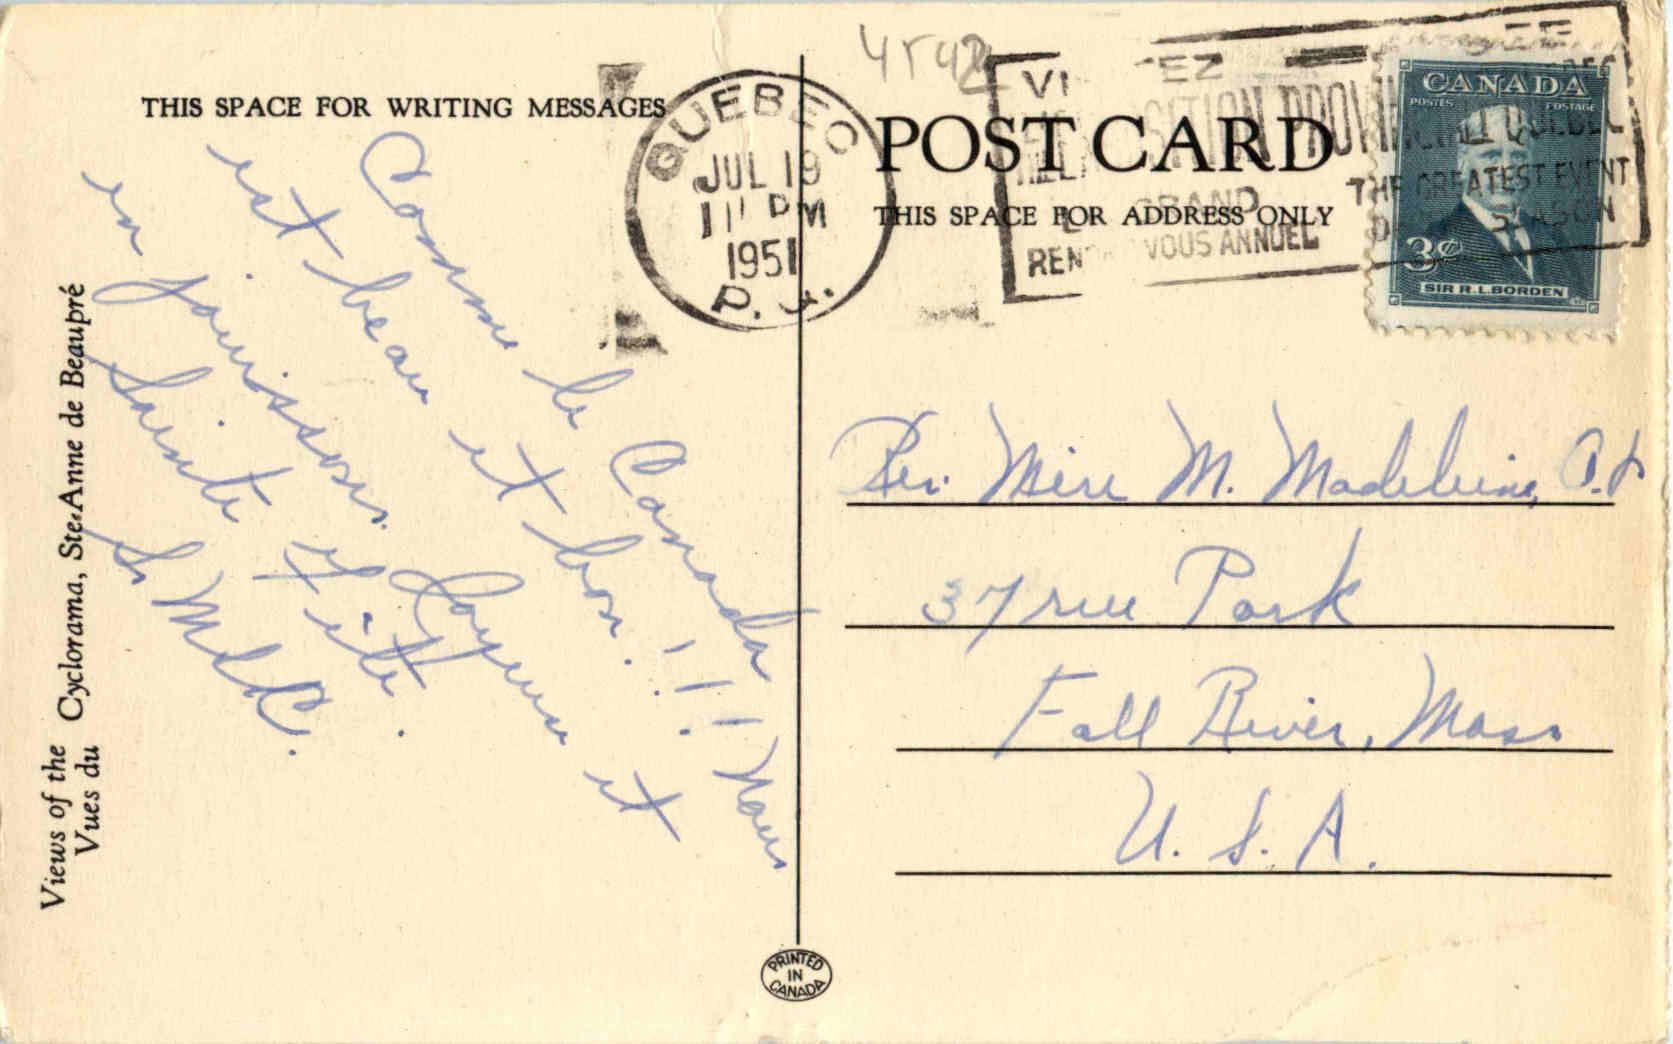 THIS SPACE FOR WRITING MESSAGES
Comme le Canada
est beau et bon!!! Nous
en jouissons. Joyeuse et
Sainte Fête.
Sr M d C.
Views of the Cyclorama, Ste-Anne de Beaupré
Vues du
QUEBEC
JUL 19
11 PM
1951
P. Q.
4542
POST CARD
THIS SPACE FOR ADDRESS ONLY
PROVINCIALE QUEBEC
GRAND
RENDEZ-VOUS ANNUEL
THE GREATEST EVENT
SEASON
CANADA
POSTES POSTAGE
3¢
SIR R.L. BORDEN
Rev. Mère M. Madeleine,
37 rue Park
Fall River, Mass
U. S. A.
PRINTED
IN
CANADA